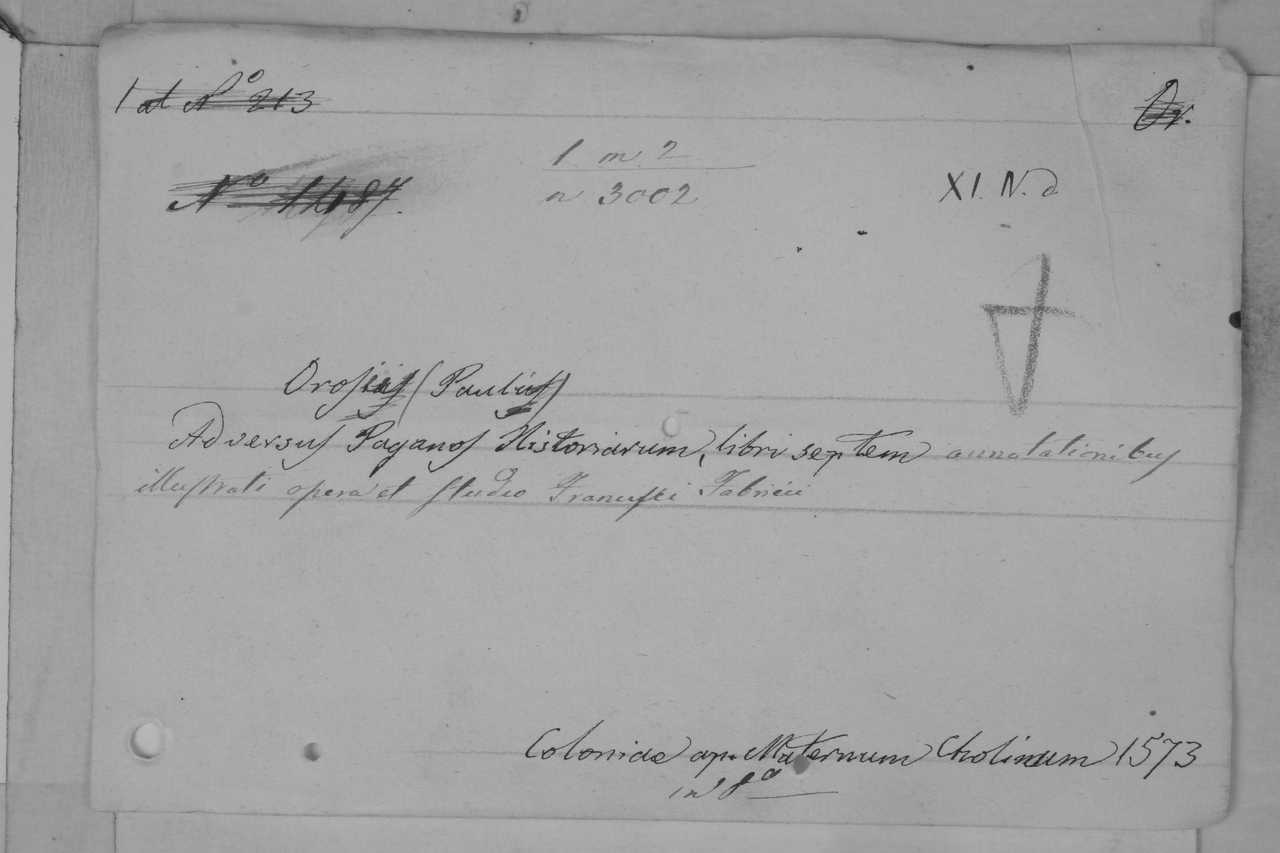 1 at No 213
Or.
No 1487.
1 m 2
n 3002
XI. N. d
Orosius (Paulus)
Adversus Paganos Historiarum, libri septem annotationibus
illustrati opera et studio Francisci Fabricii
Coloniae ap. Maternum Cholinum 1573
in 8o